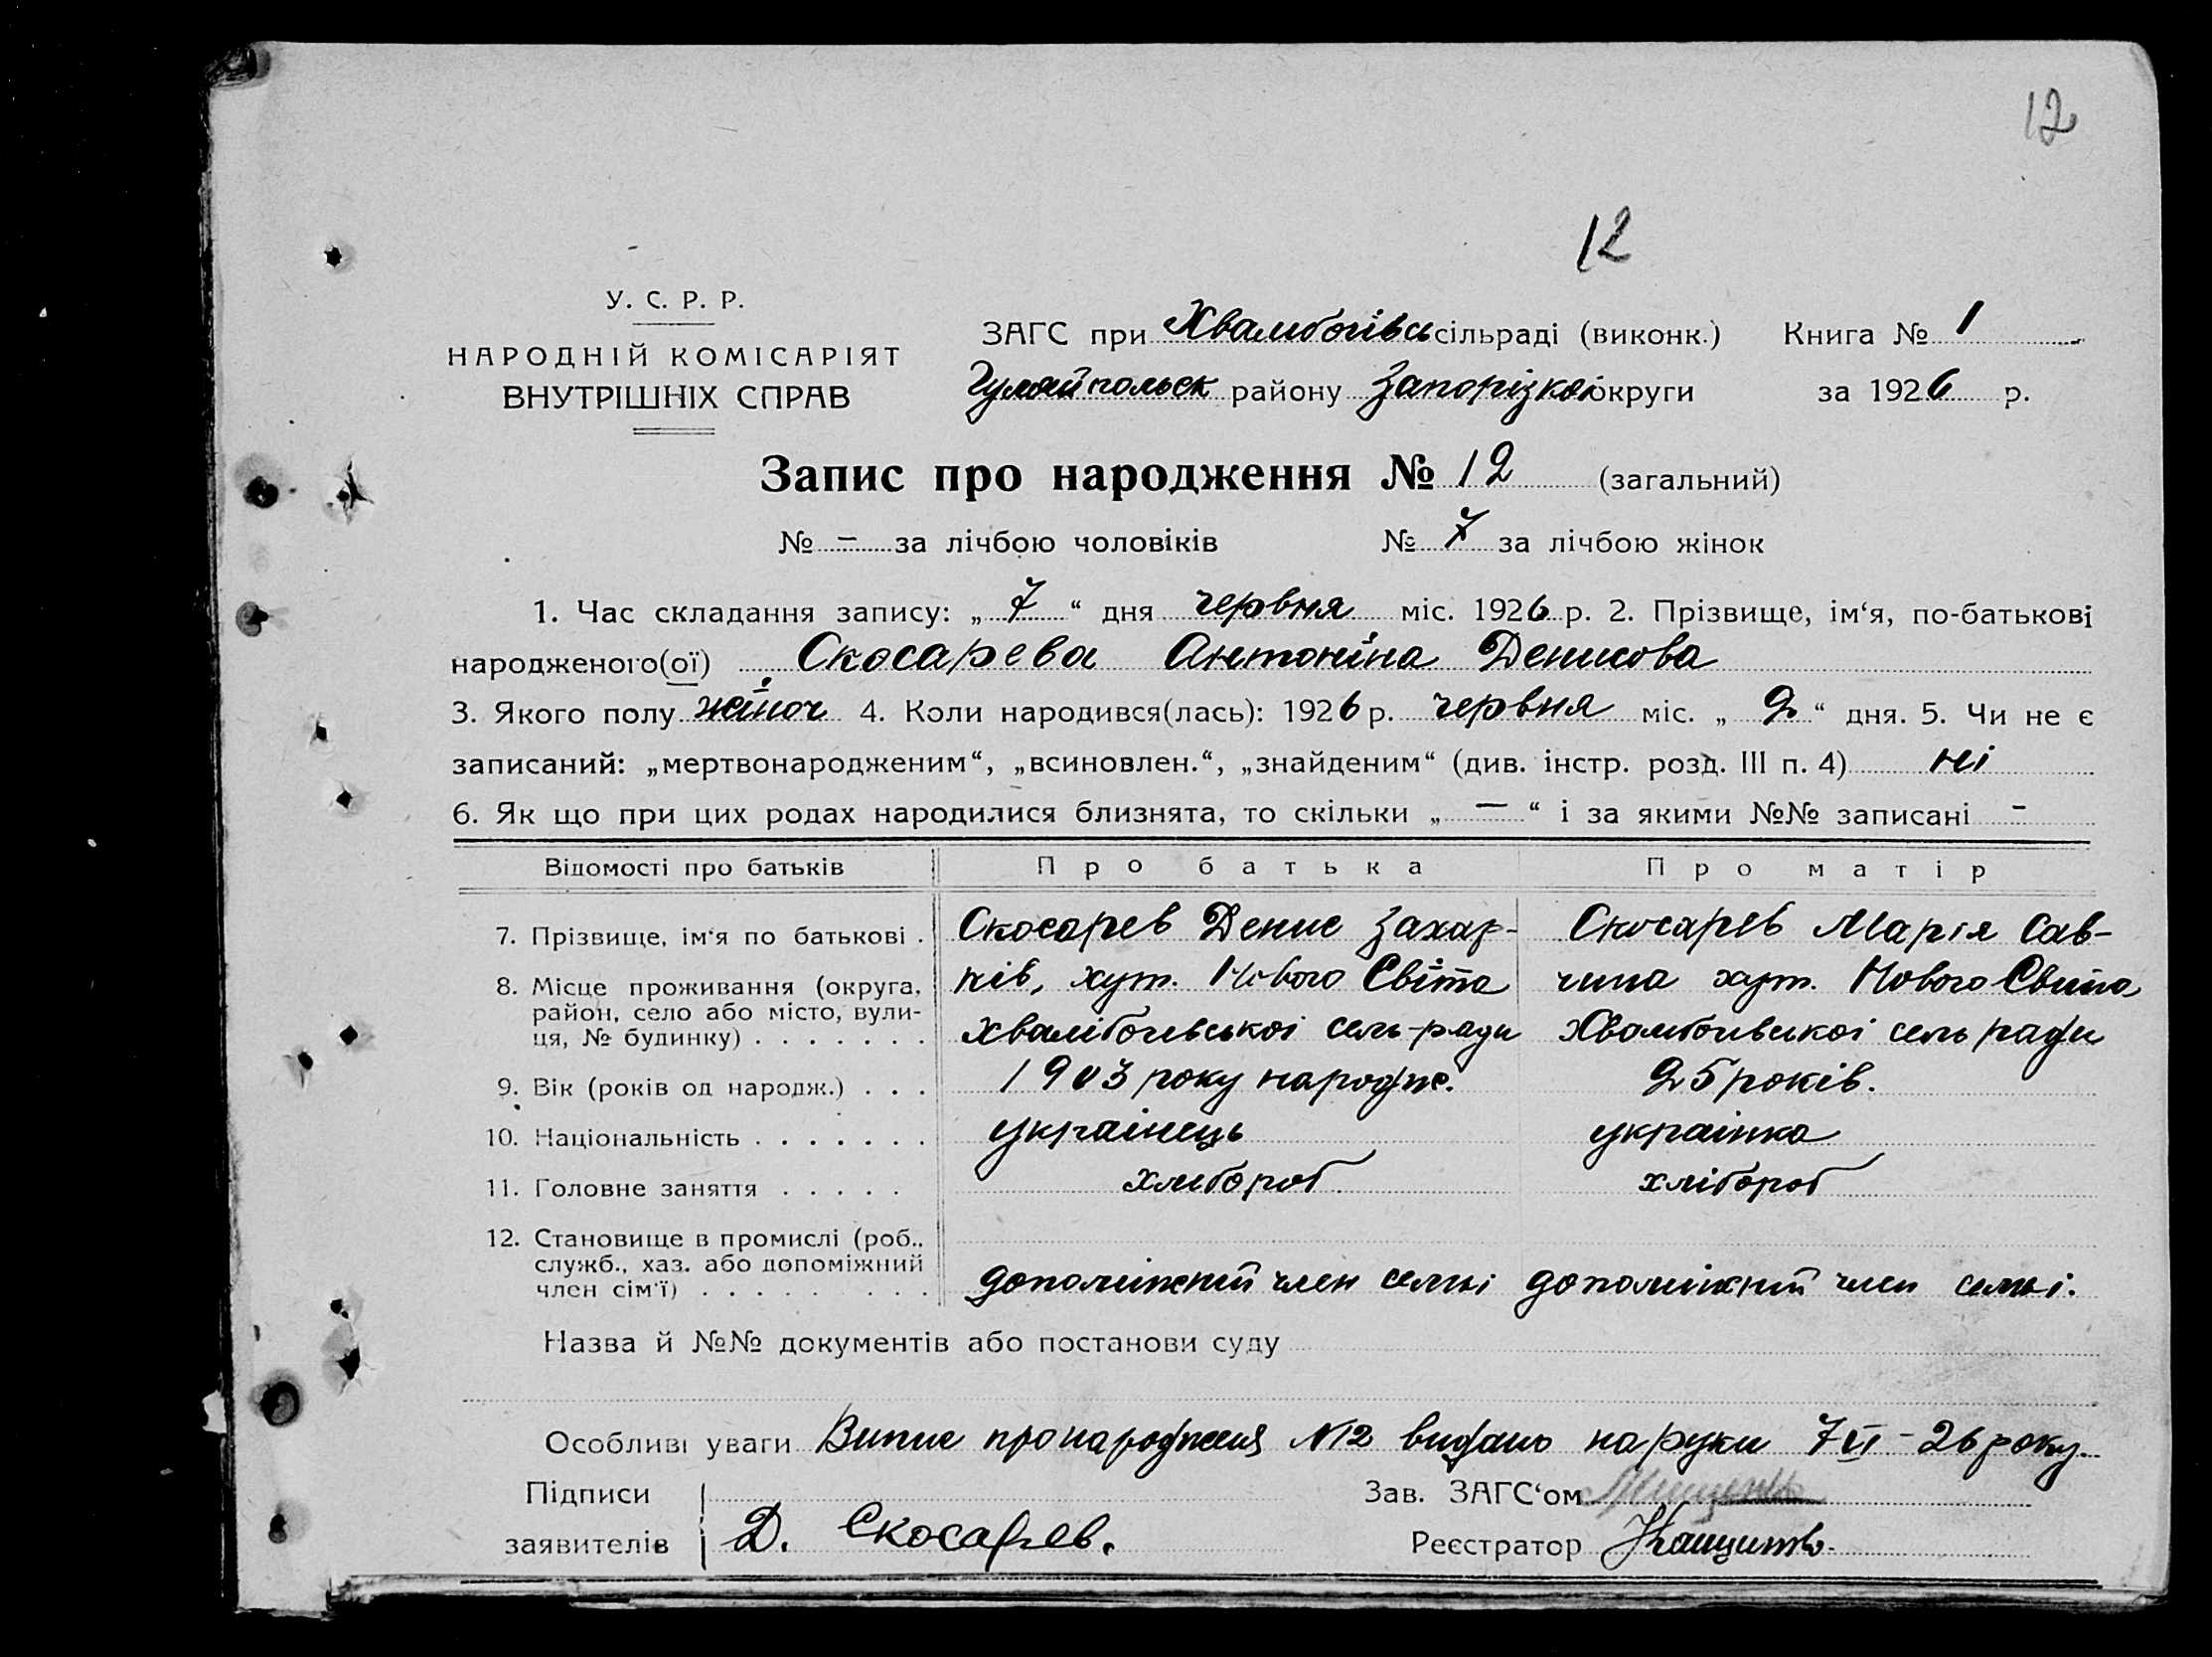 12
12
У. С. Р. Р.
НАРОДНІЙ КОМІСАРІЯТ
ВНУТРІШНІХ СПРАВ
ЗАГС при Хвалибогівсь сільраді (виконк.) Книга № 1
Гуляйпольск району Запорізкоі округи за 1926 р.
Запис про народження № 12 (загальний)
№ - за лічбою чоловіків № 7 за лічбою жінок
1. Час складання запису: „ 7 “ дня червня міс. 1926 р. 2. Прізвище, ім‘я, по-батькові
народженого(ої) Скосарева Антоніна Денисова
3. Якого полу жіноч 4. Коли народився(лась): 1926 р. червня міс. „ 2 “ дня. 5. Чи не є
записаний: „мертвонародженим“, „всиновлен.“, „знайденим“ (див. інстр. розд. III п. 4) ні
6. Як що при цих родах народилися близнята, то скільки „ — “ і за якими №№ записані -
Відомості про батьків Про батька Про матір
7. Прізвище, ім‘я по батькові . Скосарев Денис Захар- Скосарев Марія Сав-
8. Місце проживання (округа, ків, хут. Нового Світа чина хут. Нового Свита
район, село або місто, вули-
ця, № будинку) . . . . . . . Хвалібогівськоі сель-ради Хвалибогивскоі сель ради
9. Вік (років од народж.) . . . 1903 року народже. 25 років.
10. Національність . . . . . . . украінець украінка
11. Головне заняття . . . . . хлибороб хлібороб
12. Становище в промислі (роб.,
служб., хаз. або допоміжний
член сім‘ї) . . . . . . . . допоміжний член семьі допоміжний член семьі.
Назва й №№ документів або постанови суду
Особливі уваги Випис про народження N12 видано на руки 7 VI - 26 року.
Підписи Зав. ЗАГС‘ом
заявителів Д. Скосарев. Реєстратор